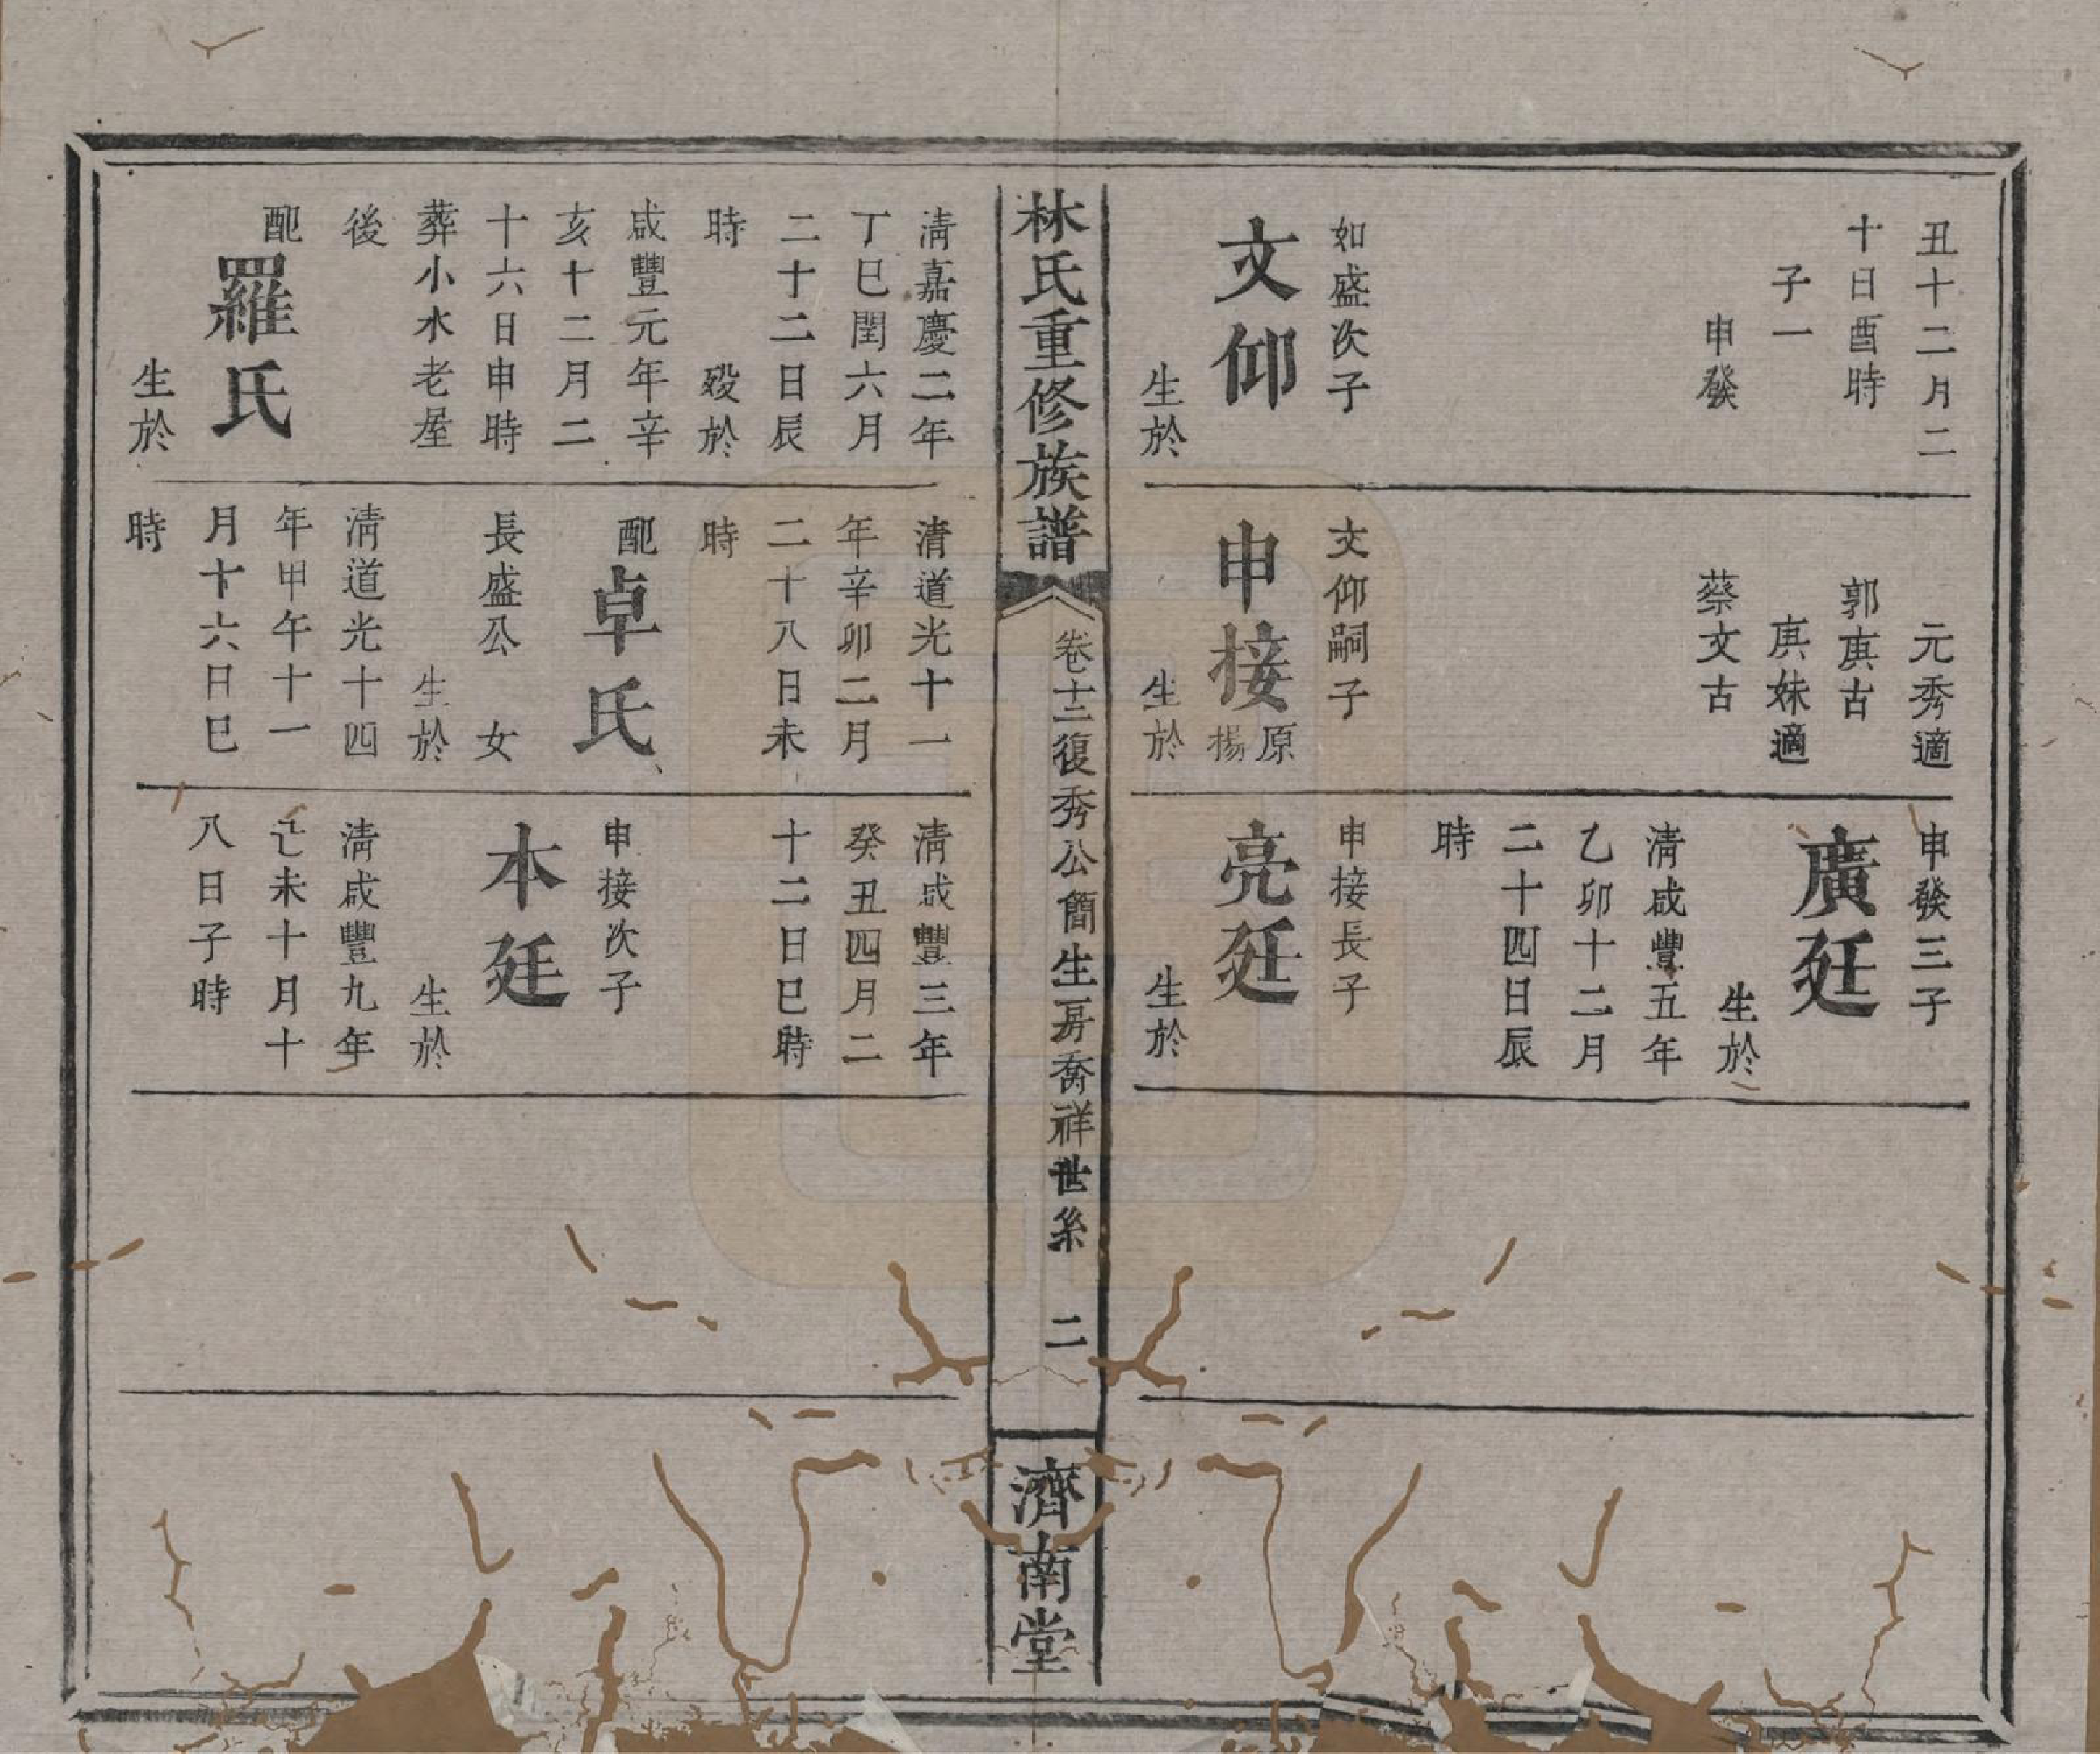 丑十二月二
十日酉時
子一
申發
如盛次子
文仰
生於
元秀適
郭庚古
庚妹適
蔡文古
文仰嗣子
申接
原
楊
生於
申發三子
廣廷
生於
清咸豐五年
乙卯十二月
二十四日辰
時
申接長子
亮廷
生於
林氏重修族譜
卷十二復秀公簡生房喬祥世系 二
濟南堂
清嘉慶二年
丁巳閏六月
二十二日辰
時 歿於
咸豐元年辛
亥十二月二
十六日申時
葬小水老屋
後
配
羅氏
生於
清道光十一
年辛卯二月
二十八日未
時
配
卓氏
長盛公 女
生於
清道光十四
年甲午十一
月十六日巳
時
清咸豐三年
癸丑四月二
十二日巳時
申接次子
本廷
生於
清咸豐九年
己未十月十
八日子時